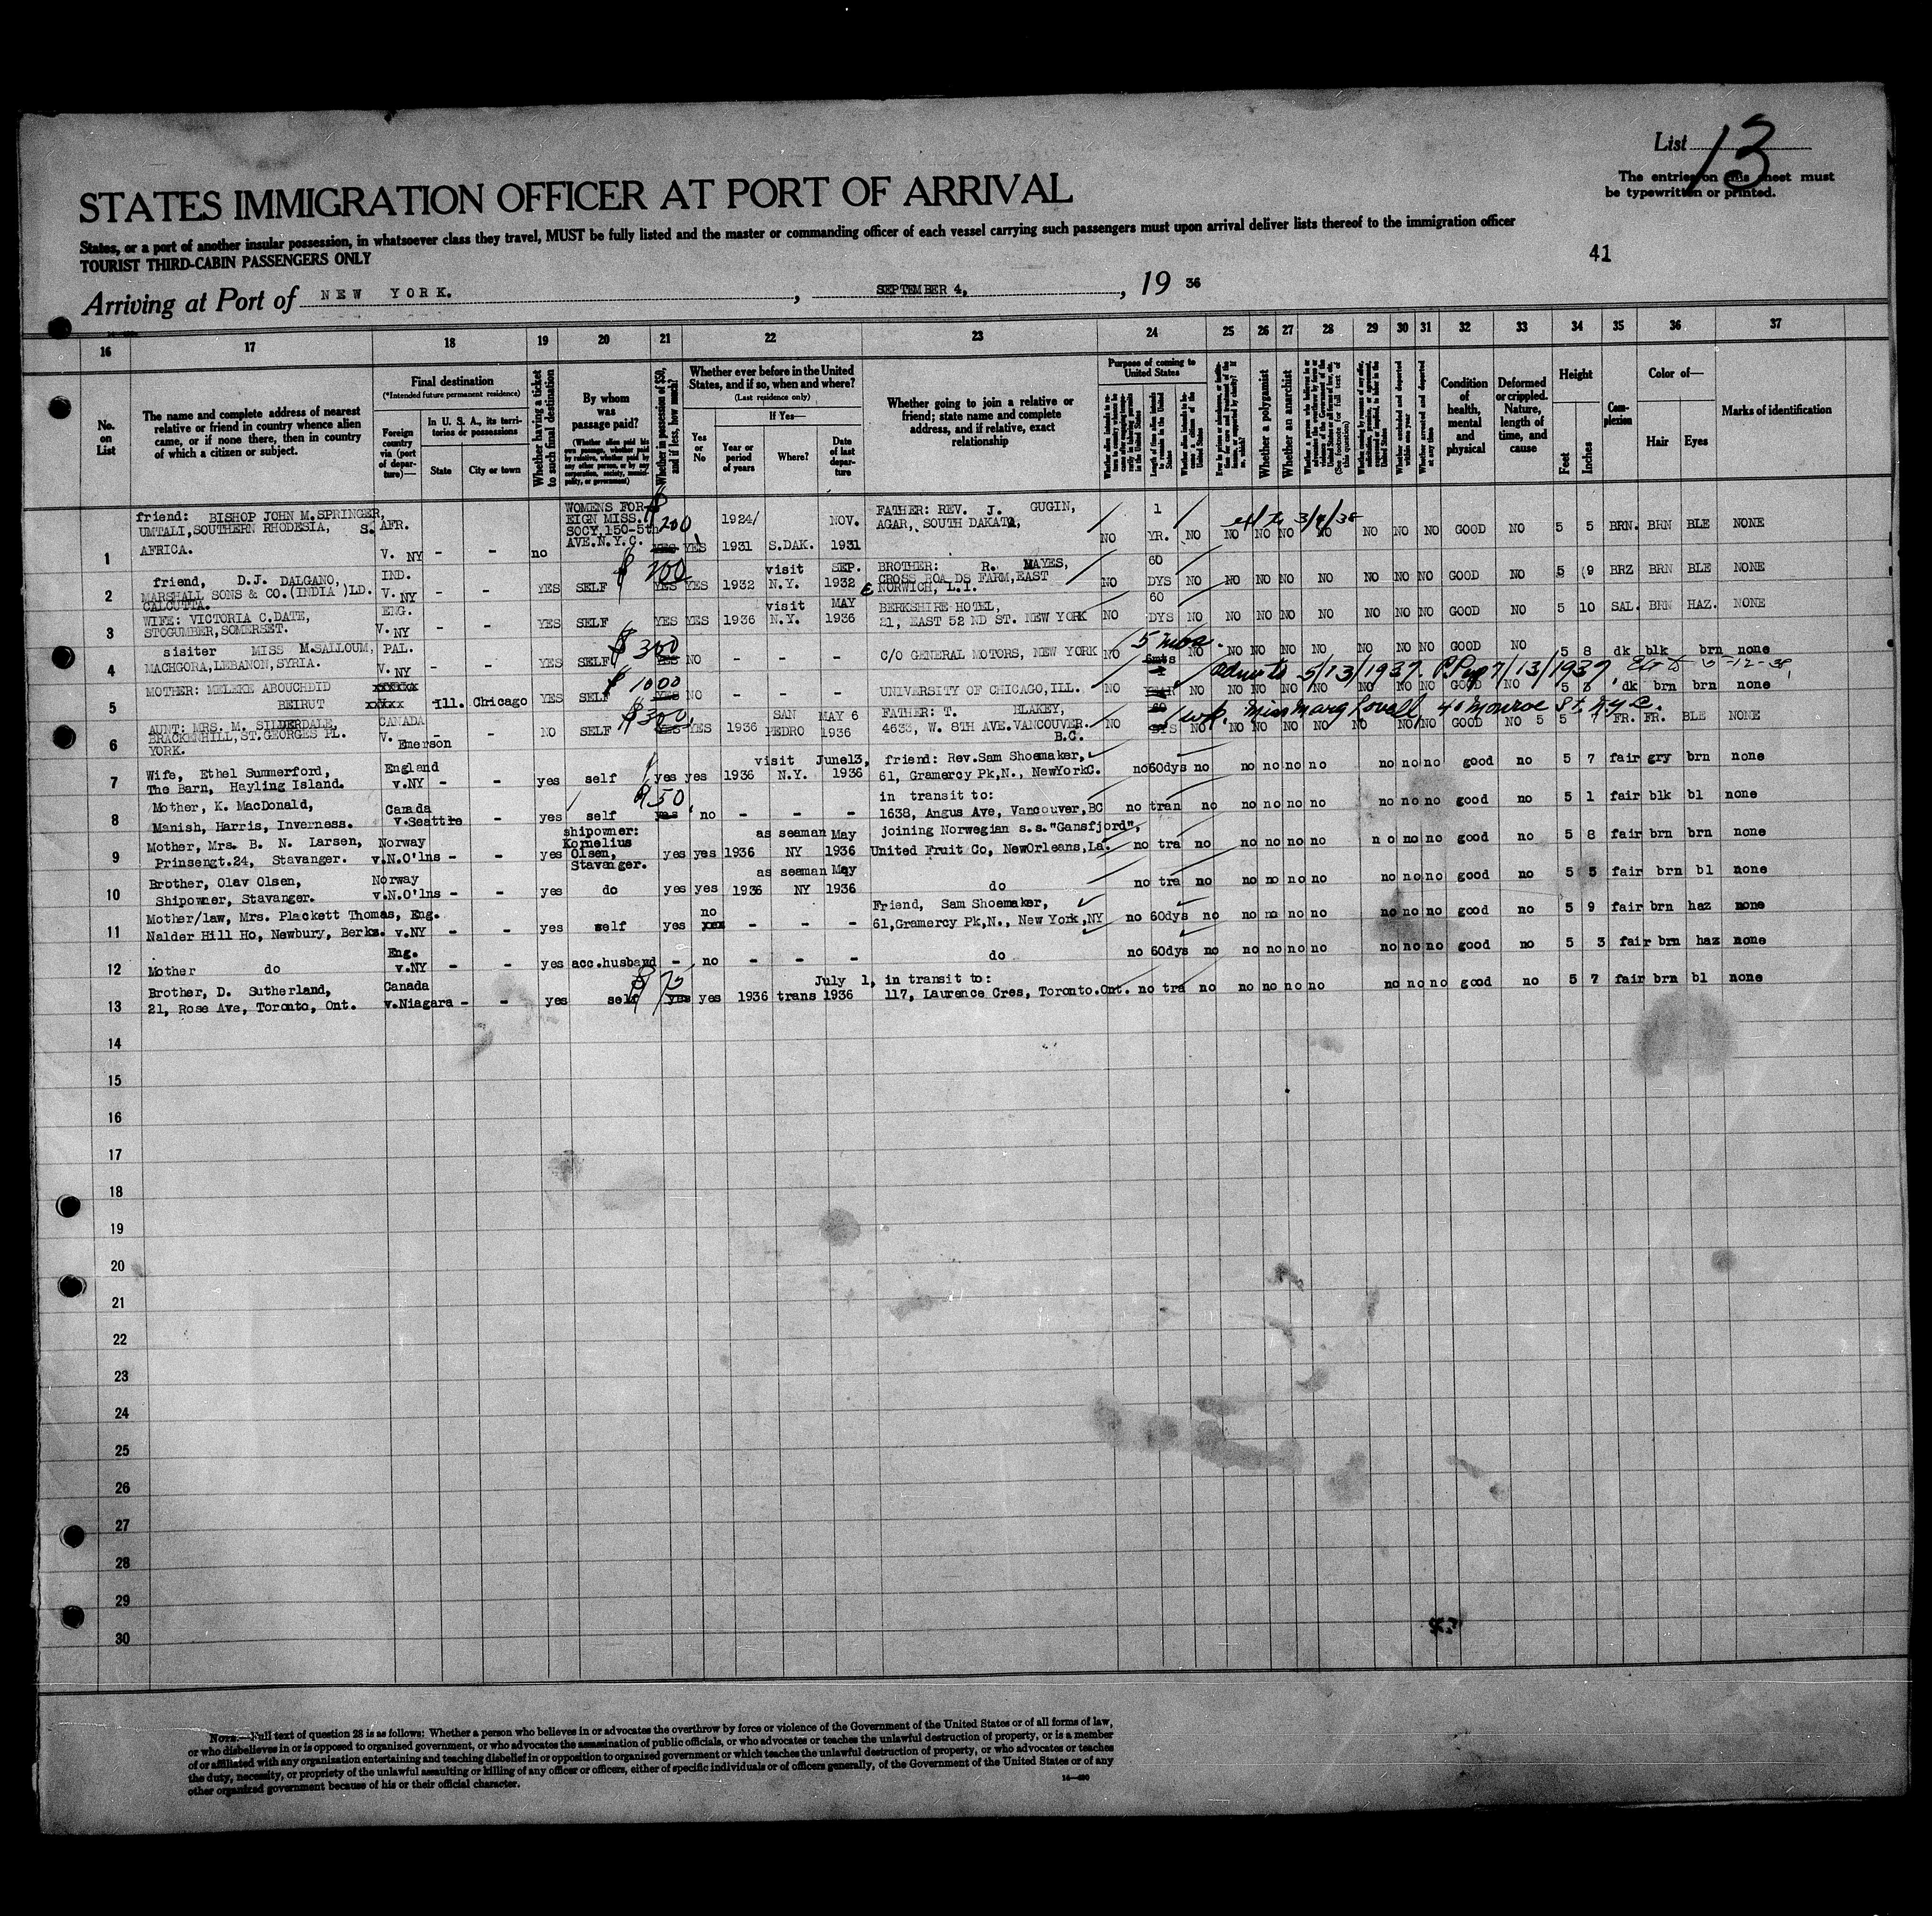 List 13
The entries on this sheet must
be typewritten or printed.
STATES IMMIGRATION OFFICER AT PORT OF ARRIVAL
States, or a port of another insular possession, in whatsoever class they travel, MUST be fully listed and the master or commanding officer of each vessel carrying such passengers must upon arrival deliver lists thereof to the immigration officer
TOURIST THIRD-CABIN PASSENGERS ONLY
41
Arriving at Port of NEW YORK. , SEPTEMBER 4, , 19 36
16 17 18 19 20 21 22 23 24 25 26 27 28 29 30 31 32 33 34 35 36 37
No. on List
The name and complete address of nearest
relative or friend in country whence alien
came, or if none there, then in country
of which a citizen or subject.
Final destination
(*Intended future permanent residence)
Foreign country via (port of departure)—
In U. S. A., its territories or possessions
State
City or town
Whether having a ticket to such final destination
By whom was passage paid?
(Whether alien paid his own passage, whether paid by relative, whether paid by any other person, or by any corporation, society, municipality, or government)
Whether in possession of $50, and if less, how much?
Whether ever before in the United States, and if so, when and where?
(Last residence only)
Yes or No
If Yes—
Year or period of years
Where?
Date of last departure
Whether going to join a relative or
friend; state name and complete
address, and if relative, exact
relationship
Purpose of coming to United States
Length of time alien intends to remain in the United States
Whether a polygamist
Whether an anarchist
Condition of health, mental and physical
Deformed or crippled. Nature, length of time, and cause
Height
Feet
Inches
Complexion
Color of—
Hair
Eyes
Marks of identification
1 friend: BISHOP JOHN M.SPRINGER, UMTALI,SOUTHERN RHODESIA, S. AFRICA. AFR. V. NY - - no WOMENS FOREIGN MISS. SOCY.150-5th AVE.N.Y.C. $200 YES YES 1924/ 1931 S.DAK. NOV. 1931 FATHER: REV. J. GUGIN, AGAR, SOUTH DAKATA, NO 1 YR. NO 3/4/38 NO NO NO NO NO NO NO GOOD NO 5 5 BRN. BRN BLE NONE
2 friend, D.J. DALGANO, MARSHALL SONS & CO.(INDIA )LD. CALCUTTA. IND. V. NY - - YES SELF $200 YES YES 1932 visit N.Y. SEP. 1932 BROTHER: R. MAYES, CROSS ROA DS FARM,EAST NORWICH, L.I. NO 60 DYS NO NO NO NO NO NO NO NO GOOD NO 5 9 BRZ BRN BLE NONE
3 WIFE: VICTORIA C.DATE, STOGUMBER,SOMERSET. ENG. V. NY - - YES SELF YES YES 1936 visit N.Y. MAY 1936 BERKSHIRE HOTEL, 21, EAST 52 ND ST. NEW YORK NO 60 DYS NO NO NO NO NO NO NO NO GOOD NO 5 10 SAL. BRN HAZ. NONE
4 sisiter MISS M.SALLOUM, MACHGORA,LEBANON,SYRIA. PAL. V. NY - - YES SELF $300 YES NO - - - C/O GENERAL MOTORS, NEW YORK NO 5 mos. 6mts NO NO NO NO NO NO NO NO GOOD NO 5 8 dk blk brn none
5/13/1937. 7/13/1937
5 MOTHER: MELEKE ABOUCHDID BEIRUT xxxxxx xxxxx Ill. Chicago YES SELF $1000 YES NO - - - UNIVERSITY OF CHICAGO,ILL. NO 1 YEAR NO NO NO NO NO NO NO NO GOOD NO 5 6 dk brn brn none
Miss Marg Lovell 40 Monroe St. N.Y.C.
6 AUNT: MRS. M. SILDERDALE, BRACKENHILL,ST.GEORGES PL. YORK. CANADA V. Emerson - - NO SELF $300 YES YES 1936 SAN PEDRO MAY 6 1936 FATHER: T. BLAKEY, 4633, W. 8TH AVE.VANCOUVER. B.C. NO 60 DYS NO NO NO NO NO NO NO NO GOOD NO 5 5 7 FR. FR. BLE NONE
7 Wife, Ethel Summerford, The Barn, Hayling Island. England v.NY - - yes self yes yes 1936 visit N.Y. June13, 1936 friend: Rev.Sam Shoemaker, 61, Gramercy Pk,N., NewYorkC. no 60dys no no no no no no no no good no 5 7 fair gry brn none
8 Mother, K. MacDonald, Manish, Harris, Inverness. Canada v.Seattle - yes self $50 yes no - - - in transit to: 1638, Angus Ave, Vancouver,BC no tran no no no no no no no no good no 5 1 fair blk bl none
9 Mother, Mrs. B. N. Larsen, Prinsengt.24, Stavanger. Norway v.N.O'lns - - yes shipowner: Kornelius Olsen, Stavanger. yes yes 1936 as seaman NY May 1936 joining Norwegian s.s."Gansfjord", United Fruit Co, NewOrleans,La. no tra no no no no no no no no good no 5 8 fair brn brn none
10 Brother, Olav Olsen, Shipowner, Stavanger. Norway v.N.O'lns - - yes do yes yes 1936 as seaman NY May 1936 do no tra no no no no no no no no good no 5 5 fair brn bl none
11 Mother/law, Mrs. Plackett Thomas, Nalder Hill Ho, Newbury, Berks. Eng. v.NY - - yes self yes no xxx - - - Friend, Sam Shoemaker, 61,Gramercy Pk,N., New York,NY no 60dys no no no no no no no no good no 5 9 fair brn haz none
12 Mother do Eng. v.NY - - yes acc.husband - no - - - do no 60dys no no no no no no no no good no 5 3 fair brn haz none
13 Brother, D. Sutherland, 21, Rose Ave, Toronto, Ont. Canada v.Niagara - - yes self $75 yes yes 1936 trans July 1, 1936 in transit to: 117, Laurence Cres, Toronto.Ont. no tra no no no no no no no no good no 5 7 fair brn bl none
14
15
16
17
18
19
20
21
22
23
24
25
26
27
28
29
30
NOTE.—Full text of question 28 is as follows: Whether a person who believes in or advocates the overthrow by force or violence of the Government of the United States or of all forms of law,
or who disbelieves in or is opposed to organized government, or who advocates the assassination of public officials, or who advocates or teaches the unlawful destruction of property, or is a member
of or affiliated with any organization entertaining and teaching disbelief in or opposition to organized government or which teaches the unlawful destruction of property, or who advocates or teaches
the duty, necessity, or propriety of the unlawful assaulting or killing of any officer or officers, either of specific individuals or of officers generally, of the Government of the United States or of any
other organized government because of his or their official character.